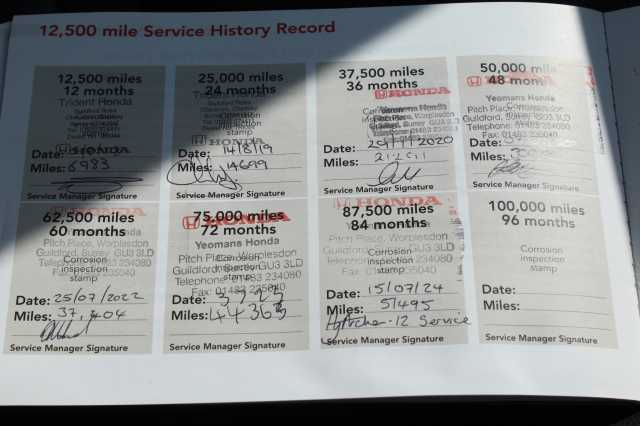 12,500 mile Service History Record
12,500 miles
12 months
Trident Honda
Date:
Miles: 6983
Service Manager Signature
25,000 miles
24 months
stamp
HONDA
Date: 14/8/19
Miles: 14699
Service Manager Signature
37,500 miles
36 months
HONDA
Yeomans Honda
Pitch Place, Worplesdon
Guildford, Surrey GU3 3LD
stamp
Date: 2020
Miles:
Service Manager Signature
50,000 miles
48 months
HONDA
Yeomans Honda
Pitch Place, Worplesdon
Guildford, Surrey GU3 3LD
Telephone: 01483 234080
Fax: 01483 235040
Date:
Miles:
Service Manager Signature
62,500 miles
60 months
HONDA
Pitch Place, Worplesdon
Guildford, Surrey GU3 3LD
Corrosion
inspection
stamp
Date: 25/07/2022
Miles: 37,404
Service Manager Signature
75,000 miles
72 months
HONDA
Yeomans Honda
Pitch Place, Worplesdon
Guildford, Surrey GU3 3LD
Telephone: 01483 234080
Fax: 01483 235040
stamp
Date: 3 7 23
Miles: 44363
Service Manager Signature
87,500 miles
84 months
HONDA
Pitch Place, Worplesdon
Guildford, Surrey GU3 3LD
Corrosion
inspection
stamp
Date: 15/07/24
Miles: 51495
12 Service
Service Manager Signature
100,000 miles
96 months
Corrosion
inspection
stamp
Date:
Miles:
Service Manager Signature